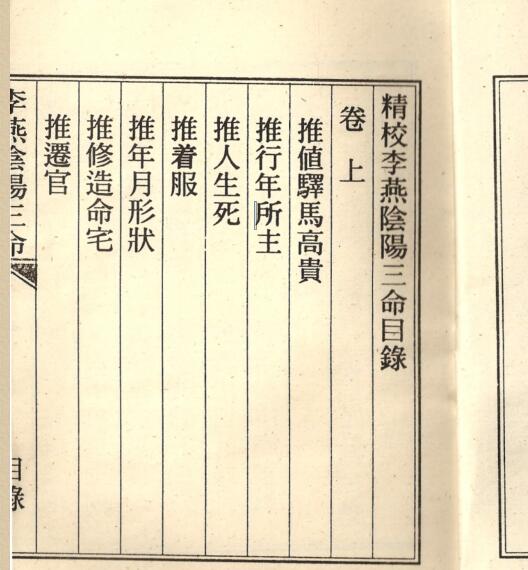 精校李燕陰陽三命目錄
卷上
推值驛馬高貴
推行年所主
推人生死
推着服
推年月形狀
推修造命宅
推遷官
李燕陰陽三命
目錄